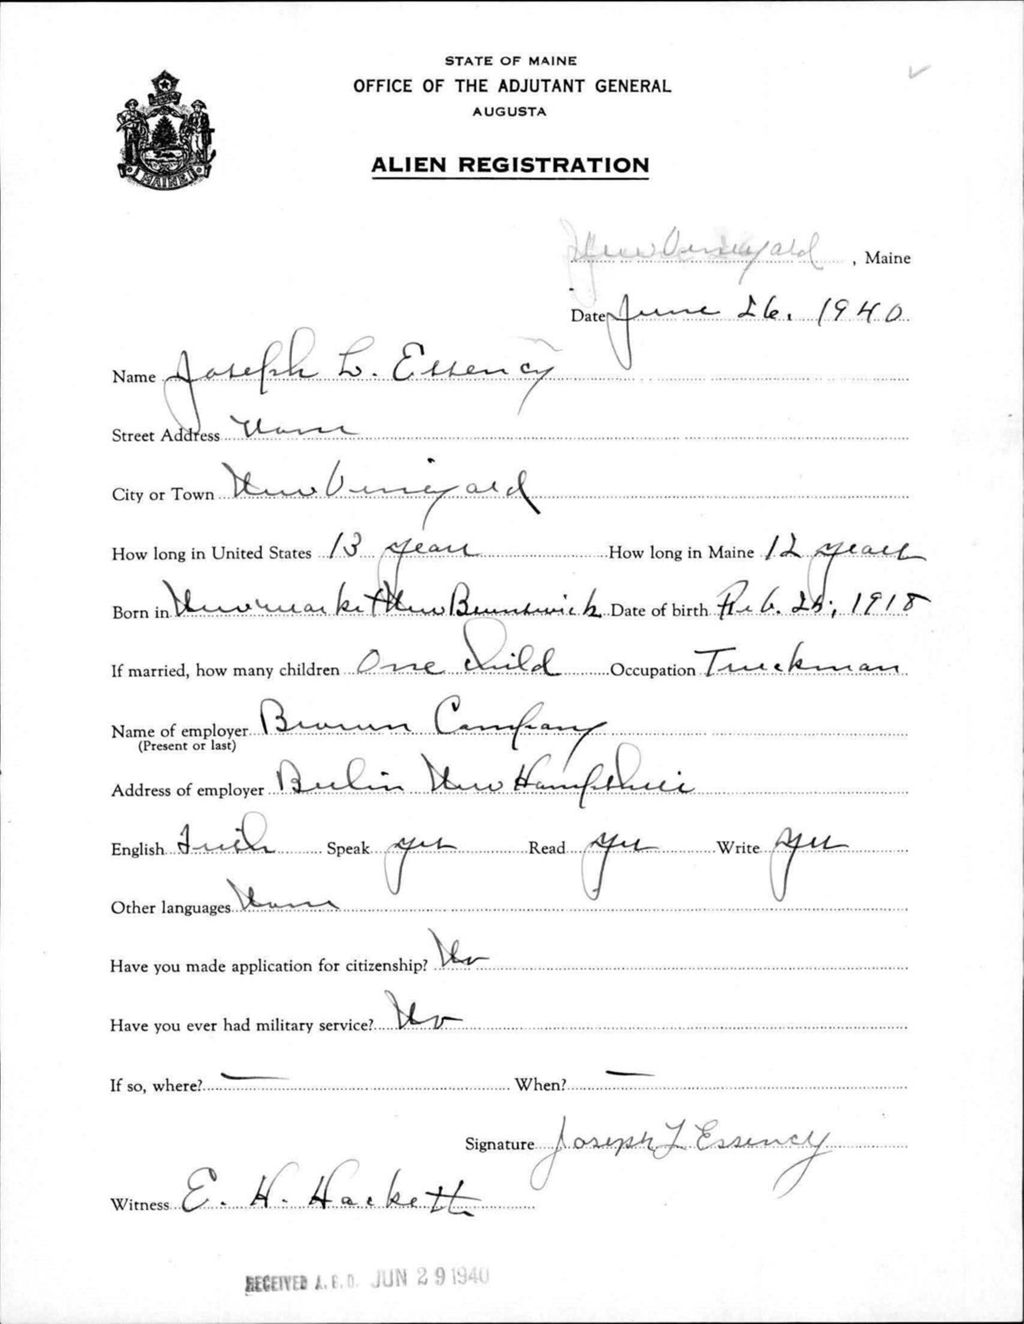 STATE OF MAINE
OFFICE OF THE ADJUTANT GENERAL
AUGUSTA
ALIEN REGISTRATION
MAINE
New Vineyard, Maine
Date June 26, 1940
Name Joseph L. Essency
Street Address None
City or Town New Vineyard
How long in United States 13 years How long in Maine 12 years
Born in Newmarket New Brunswick Date of birth Feb. 25, 1918
If married, how many children One child Occupation Truckman
Name of employer Brown Company
(Present or last)
Address of employer Berlin New Hampshire
English Irish Speak yes Read yes Write yes
Other languages None
Have you made application for citizenship? No
Have you ever had military service? No
If so, where? — When? —
Signature Joseph L Essency
Witness E. H. Hackett
RECEIVED A.G.O. JUN 29 1940